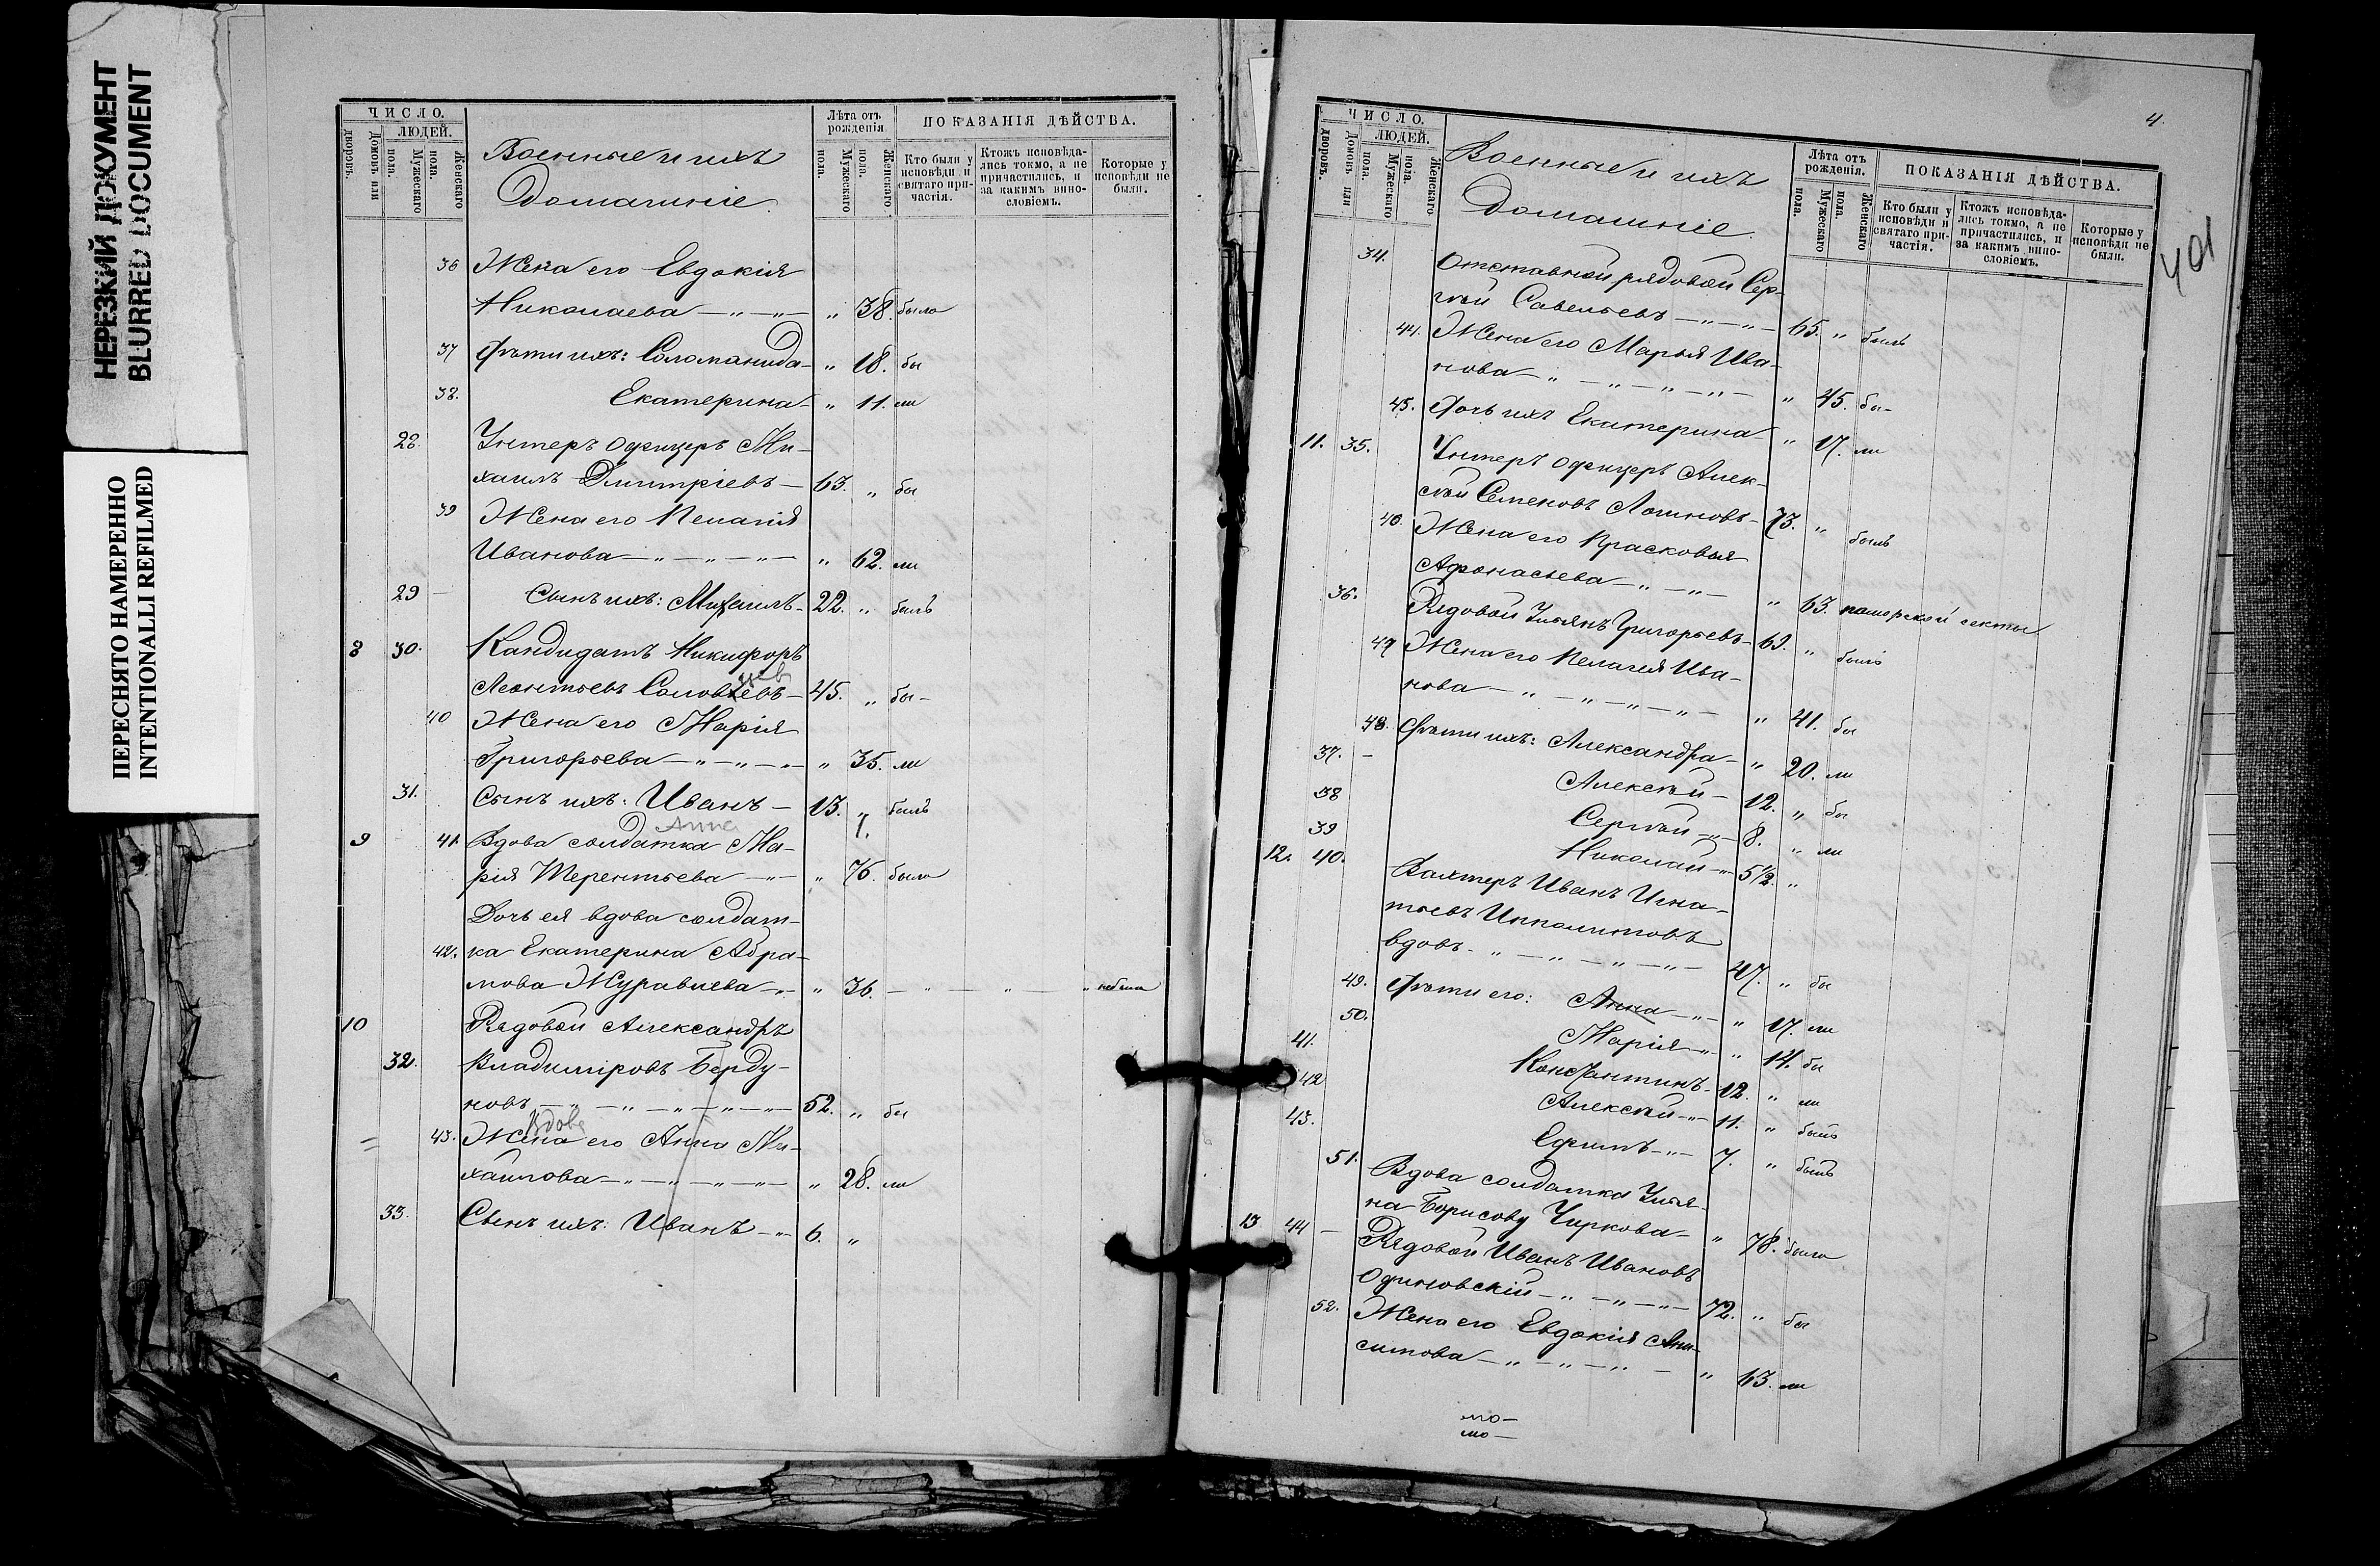 НЕРЕЗКИЙ ДОКУМЕНТ
BLURRED DOCUMENT
ПЕРЕСНЯТО НАМЕРЕННО
INTENTIONALLI REFILMED
ЧИСЛО.
Домовъ или дворовъ.
ЛЮДЕЙ.
Мужескаго пола.
Женскаго пола.
Военные и ихъ
Домашніе.
Лѣта отъ рожденія
Мужескаго пола.
Женскаго пола.
ПОКАЗАНІЯ ДѢЙСТВА.
Кто были у исповѣди и святаго причастія.
Ктожъ исповѣдались токмо, а не причастились, и за какимъ винословіемъ.
Которые у исповѣди не были.
36 Жена его Евдокія
Николаева — „ — „ — „ 38. была
37 Дѣти ихъ: Соломанида — „ 18. бы
38. Екатерина — „ 11. ли
28. Унтеръ офицеръ Ми-
хаилъ Дмитріевъ — 63. „ бы
39 Жена его Пелагія
Иванова — „ — „ — „ — „ 62. ли
29 — Сынъ ихъ: Михаилъ — 22. „ былъ
8 30. Кандидатъ Никифоръ
Леонтьевъ Соловьевъ — 45. „ бы —
40 Жена его Марія
Григорьева — „ — „ — „ — „ 35. ли
31. Сынъ ихъ: Иванъ — 13. „ былъ
Анна 7.
9 41. Вдова солдатка Ма-
рія Терентьева — „ — „ 76. была
Дочь ея вдова солдат-
42. ка Екатерина Абра-
мова Журавлева — „ — „ 36. — „ — „ — „ небыла
10 Рядовой Александръ
32. Владиміровъ Берду-
новъ — „ — „ — „ — „ — „ — 52. „ бы
Вдова
43. Жена его Анна Ми-
хайлова — „ — „ — „ — „ — „ 28. ли
33. Сынъ ихъ: Иванъ — „ — 6. „
4.
401
ЧИСЛО.
Домовъ или дворовъ.
ЛЮДЕЙ.
Мужескаго пола.
Женскаго пола.
Военные и ихъ
Домашніе.
Лѣта отъ рожденія.
Мужескаго пола.
Женскаго пола.
ПОКАЗАНІЯ ДѢЙСТВА.
Кто были у исповѣди и святаго причастія.
Ктожъ исповѣдались токмо, а не причастились, и за какимъ винословіемъ.
Которые у исповѣди не были.
34. Отставной рядовой Сер-
гѣй Савельевъ — „ — „ — 65. „ былъ
44. Жена его Марья Ива-
нова — „ — „ — „ — „ — „ 45. бы —
45. Дочь ихъ Екатерина — „ 17. ли
11. 35. Унтеръ офицеръ Алек-
сѣй Семеновъ Логиновъ — 73. „ былъ
46. Жена его Прасковья
Афонасьева — „ — „ — „ 63. поморской секты
36. Рядовой Ульянъ Григорьевъ — 63. „ былъ
47 Жена его Пелагея Ива-
нова — „ — „ — „ — „ — „ 41. бы
48. Дѣти ихъ: Александра — „ 20. ли
37. — Алексѣй — 12. „ бы
38 Сергѣй — „ — 8. „ ли
39 Николай — „ — 5 1/2. „
12. 40. Вахтеръ Иванъ Игна-
тьевъ Ипполитовъ
вдовъ. — „ — „ — „ — „ — 47. „ бы
49. Дѣти его: Анна — „ — „ 17. ли
50. Марія — „ — „ 14. бы
41. Константинъ — 12. „ ли
42 Алексѣй — „ — 11. „ былъ
43. Ефимъ — „ — 7. „ былъ
51. Вдова солдатка Улья-
на Борисова Чиркова — „ 78. была
13 44 — Рядовой Иванъ Ивановъ
Одиновскій — „ — „ — „ — 72. „ бы
52. Жена его Евдокія Ани-
симова — „ — „ — „ — „ 63. ли
мо —
мо —